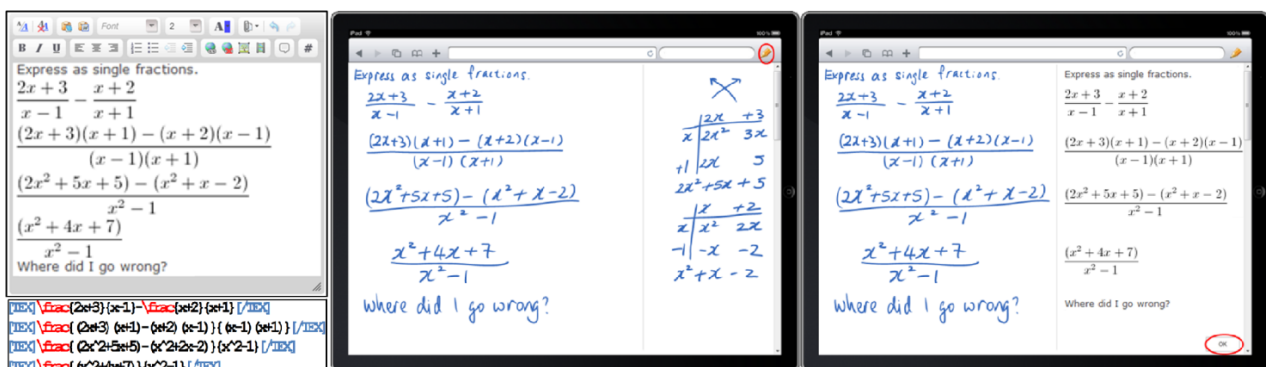 Font 2 A
B I U #
Express as single fractions.
2x + 3 x + 2
x − 1 − x + 1
(2x + 3)(x + 1) − (x + 2)(x − 1)
(x − 1)(x + 1)
(2x² + 5x + 5) − (x² + x − 2)
x² − 1
(x² + 4x + 7)
x² − 1
Where did I go wrong?
[TEX]\frac{2x+3}{x-1}-\frac{x+2}{x+1}[/TEX]
[TEX]\frac{ (2x+3) (x+1)-(x+2) (x-1) }{ (x-1) (x+1) }[/TEX]
[TEX]\frac{ (2x^2+5x+5)-(x^2+2x-2) }{x^2-1}[/TEX]
[TEX]\frac{ (x^2+4x+7) }{x^2-1}[/TEX]
iPad 100%
Express as single fractions.
2x+3 x+2
x-1 − x+1
(2x+3)(x+1) − (x+2)(x-1)
(x-1)(x+1)
(2x²+5x+5) − (x²+x-2)
x²-1
x²+4x+7
x²-1
where did I go wrong?
2x +3
x 2x² 3x
+1 2x 5
2x²+5x+5
x +2
x x² 2x
-1 -x -2
x²+x-2
iPad 100%
Express as single fractions.
2x+3 x+2
x-1 − x+1
(2x+3)(x+1) − (x+2)(x-1)
(x-1)(x+1)
(2x²+5x+5) − (x²+x-2)
x²-1
x²+4x+7
x²-1
where did I go wrong?
Express as single fractions.
2x + 3 x + 2
x − 1 − x + 1
(2x + 3)(x + 1) − (x + 2)(x − 1)
(x − 1)(x + 1)
(2x² + 5x + 5) − (x² + x − 2)
x² − 1
(x² + 4x + 7)
x² − 1
Where did I go wrong?
OK